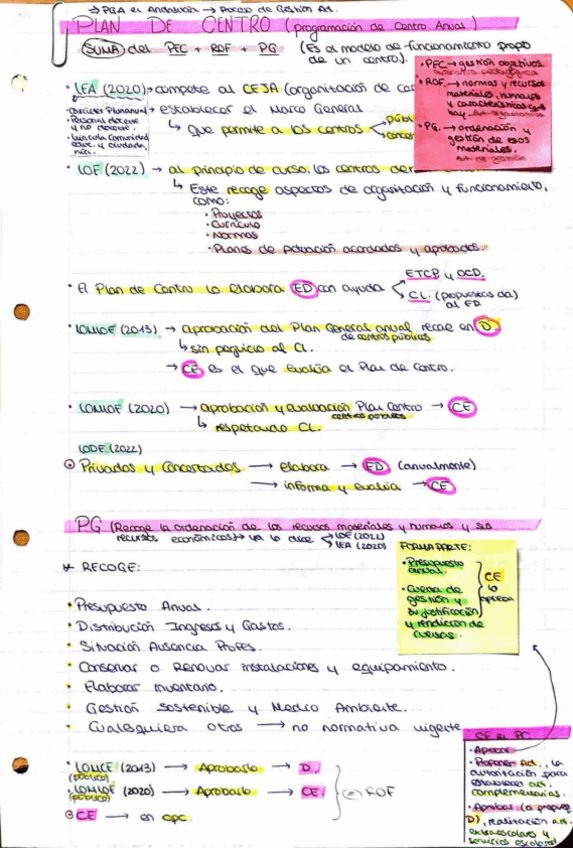 → PGA en Andalucía → Proceso de Gestión Ad.
PLAN DE CENTRO (programación de Centro Anual)
SUMA del PEC + ROF + PG (Es el modelo de funcionamiento propio
de un centro).
• PEC → gestión objetivos
• ROF → normas y recursos
materiales, humanos
y características que
hay.
• PG. → ordenación y
gestión de esos
materiales.
• LEA (2020) → compete al CEJA (organización de
→ establecer el Marco General
↳ que permite a los centros
• Carácter Plurianual
• Personal docente
y no docente.
• Vincula Comunidad
educ. y ciudada
nía.
• LOE (2022) → al principio de curso, los centros
↳ Este recoge aspectos de organización y funcionamiento,
como:
• Proyectos
• Currículo
• Normas
• Planes de Actuación acordados y aprobados.
• El Plan de Centro lo elabora ED con ayuda
ETCP y OCD.
CL. (propuestas da)
al ED.
• LOMCE (2013) → aprobación del Plan General anual recae en D.
de centros públicos
↳ sin perjuicio al CL.
→ CE es el que evalúa el Plan de Centro.
• LOMLOE (2020) → aprobación y evaluación Plan Centro → CE
centros públicos
↳ respetando CL.
LODE (2022)
Privados y Concertados → elabora → ED (anualmente)
→ informa y evalúa → CE
PG (Recoge la ordenación de los recursos materiales y humanos y sus
recursos económicos) → ya lo dice
LOE (2022)
LEA (2020)
RECOGE:
FORMA PARTE:
• Presupuesto
anual.
• Cuenta de
gestión y
su justificación
y rendición de
cuentas.
CE
lo
aprueba
• Presupuesto Anual.
• Distribución Ingresos y Gastos.
• Situación Ausencia Profes.
• Conservar o Renovar instalaciones y equipamiento.
• Elaborar inventario.
• Gestión sostenible y Medio Ambiente.
• Cualesquiera otros → no normativa vigente
• LOMCE (2013) → Aprobarlo → D.
(público)
• LOMLOE (2020) → Aprobarlo → CE.
(público)
ROF
CE → en cpc.
CE en PC
• Aprobar
• Proponer Ad., la
autorización para
establecer act.
complementarias.
• Aprobar (a propues
D), realización act.
extraescolares y
servicios escolares